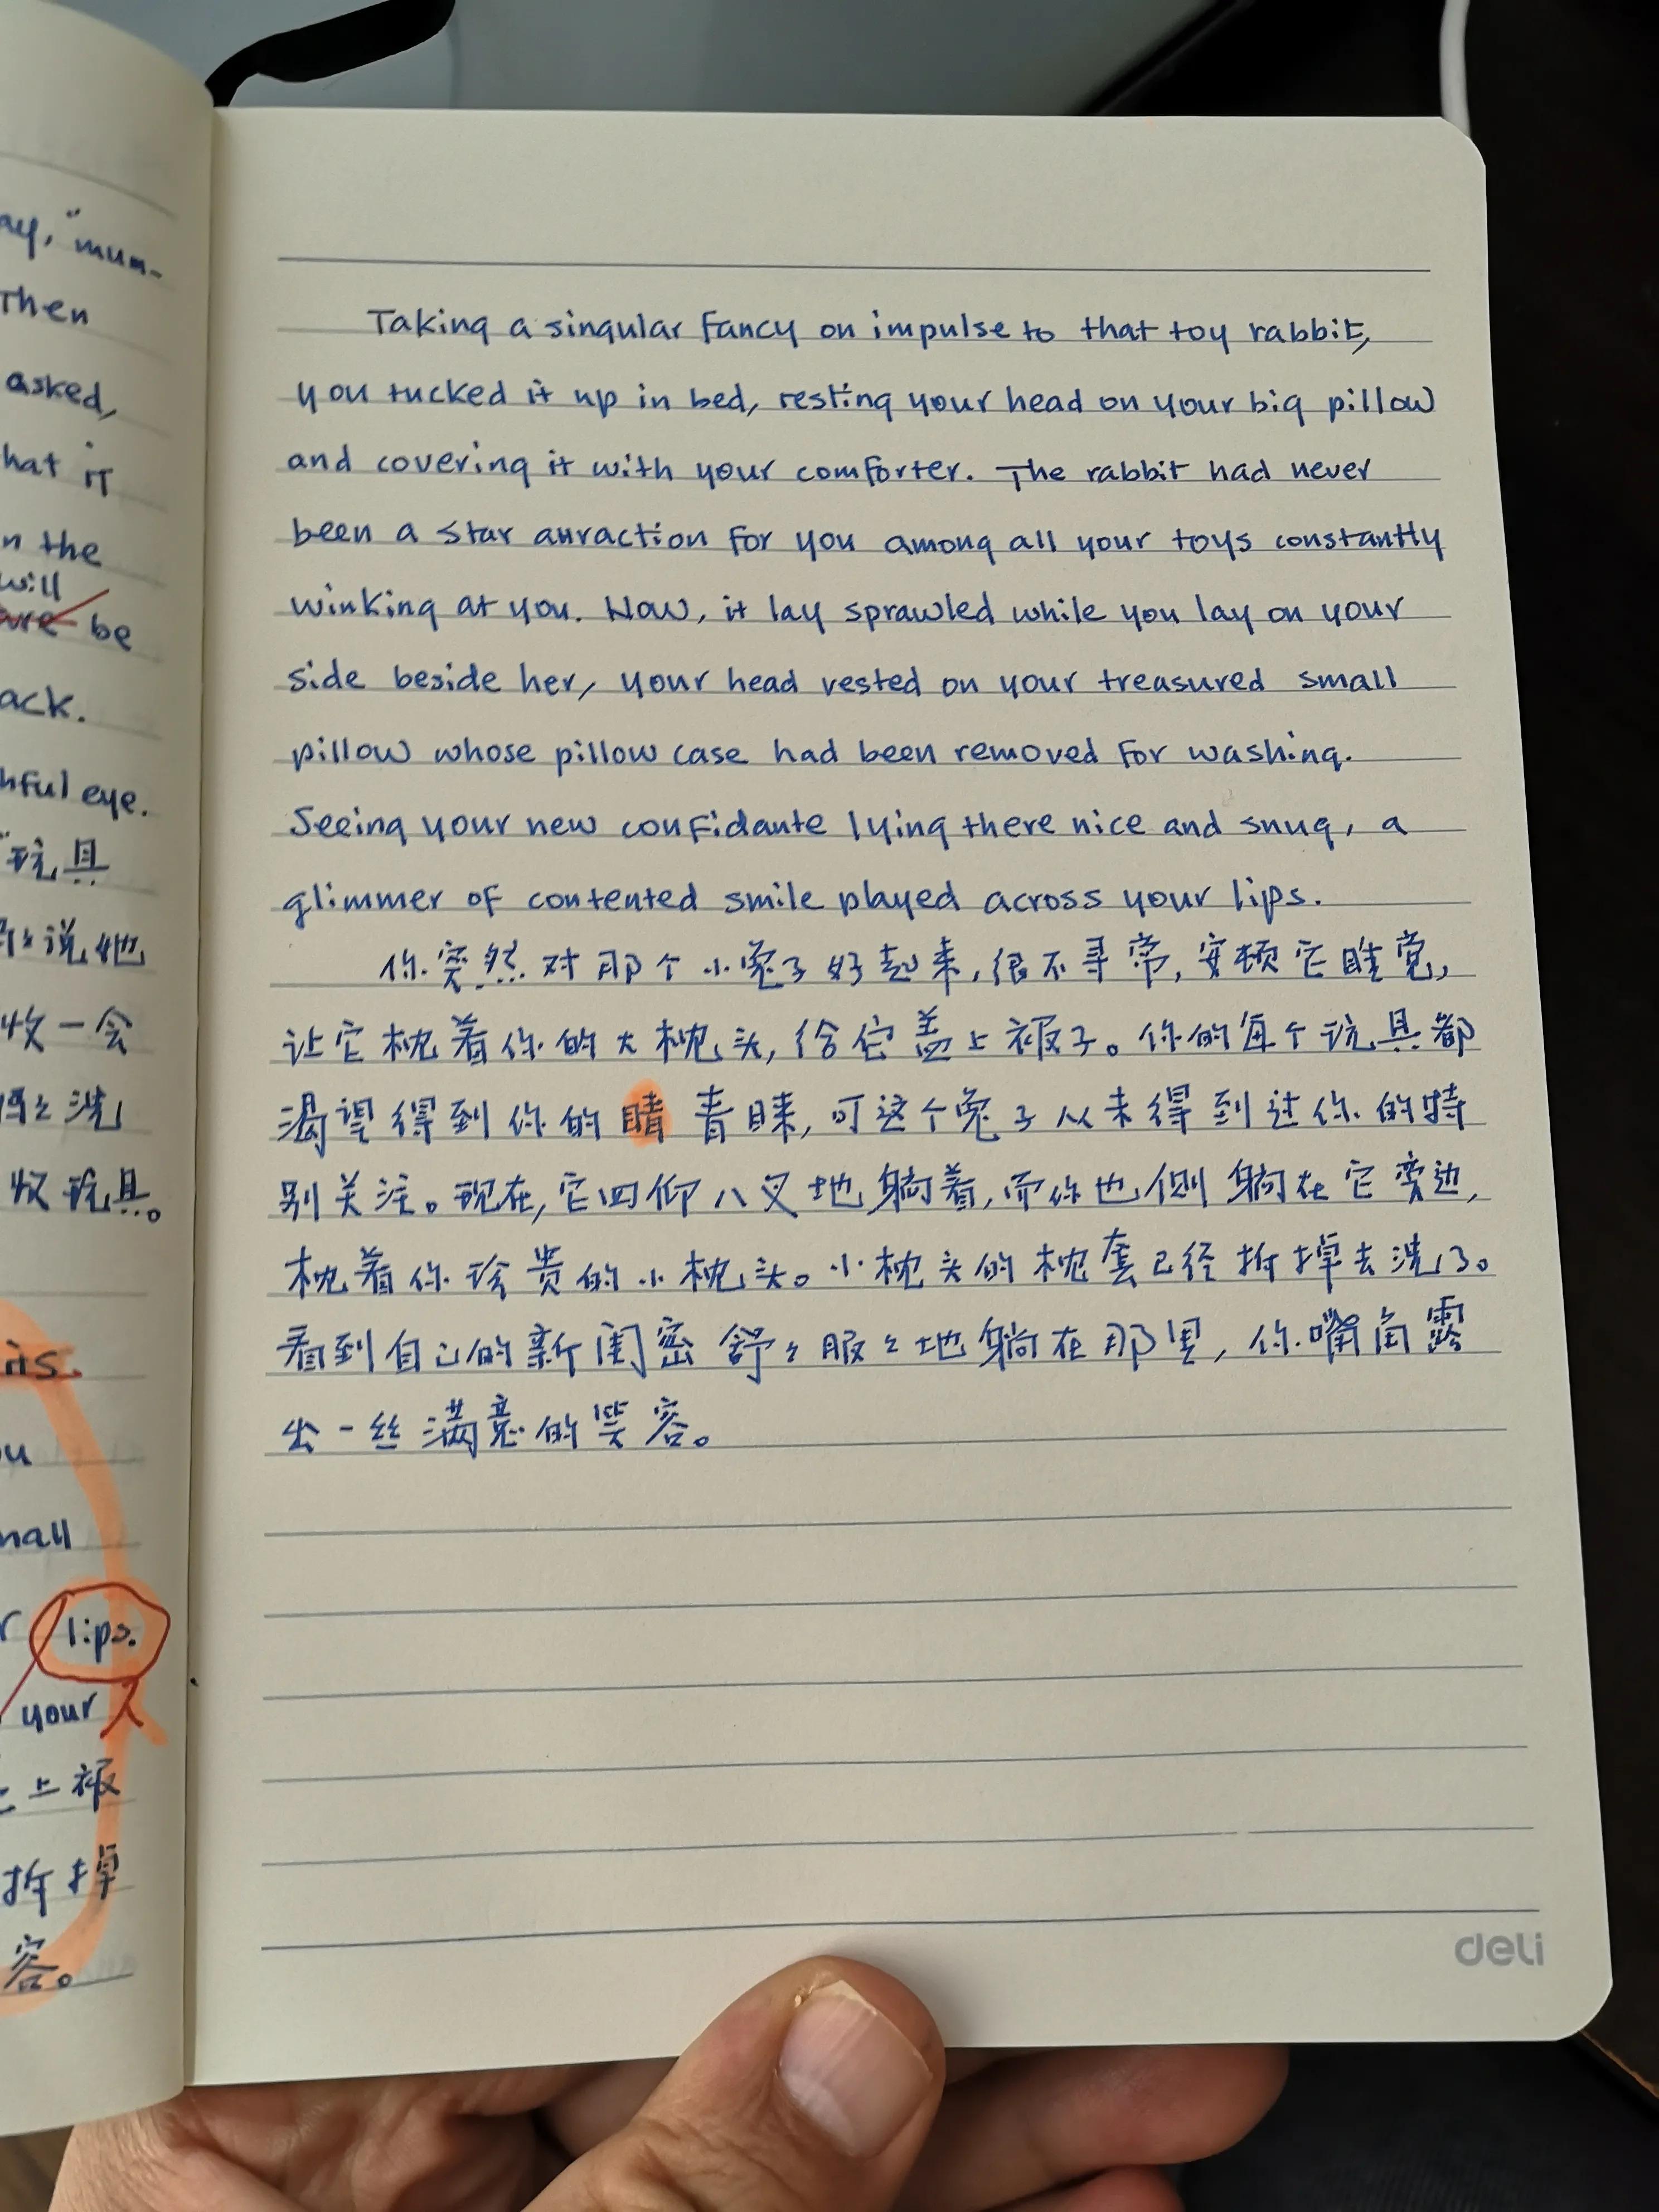 ay, "mum-
Then
asked,
hat it
n the
will
are be
ack.
hful eye.
玩具
说她
收一会
妈々洗
收玩具。
its.
ou
mall
r lips.
your
上被
拆掉
容。
Taking a singular fancy on impulse to that toy rabbit,
you tucked it up in bed, resting your head on your big pillow
and covering it with your comforter. The rabbit had never
been a star attraction for you among all your toys constantly
winking at you. Now, it lay sprawled while you lay on your
side beside her, your head rested on your treasured small
pillow whose pillow case had been removed for washing.
Seeing your new confidante lying there nice and snug, a
glimmer of contented smile played across your lips.
你突然对那个小兔子好起来,很不寻常,安顿它睡觉,
让它枕着你的大枕头,给它盖上被子。你的每个玩具都
渴望得到你的睛青睐,可这个兔子从未得到过你的特
别关注。现在,它四仰八叉地躺着,而你也侧躺在它旁边,
枕着你珍贵的小枕头。小枕头的枕套已经拆掉去洗了。
看到自己的新闺密舒々服々地躺在那里,你嘴角露
出一丝满意的笑容。
deli